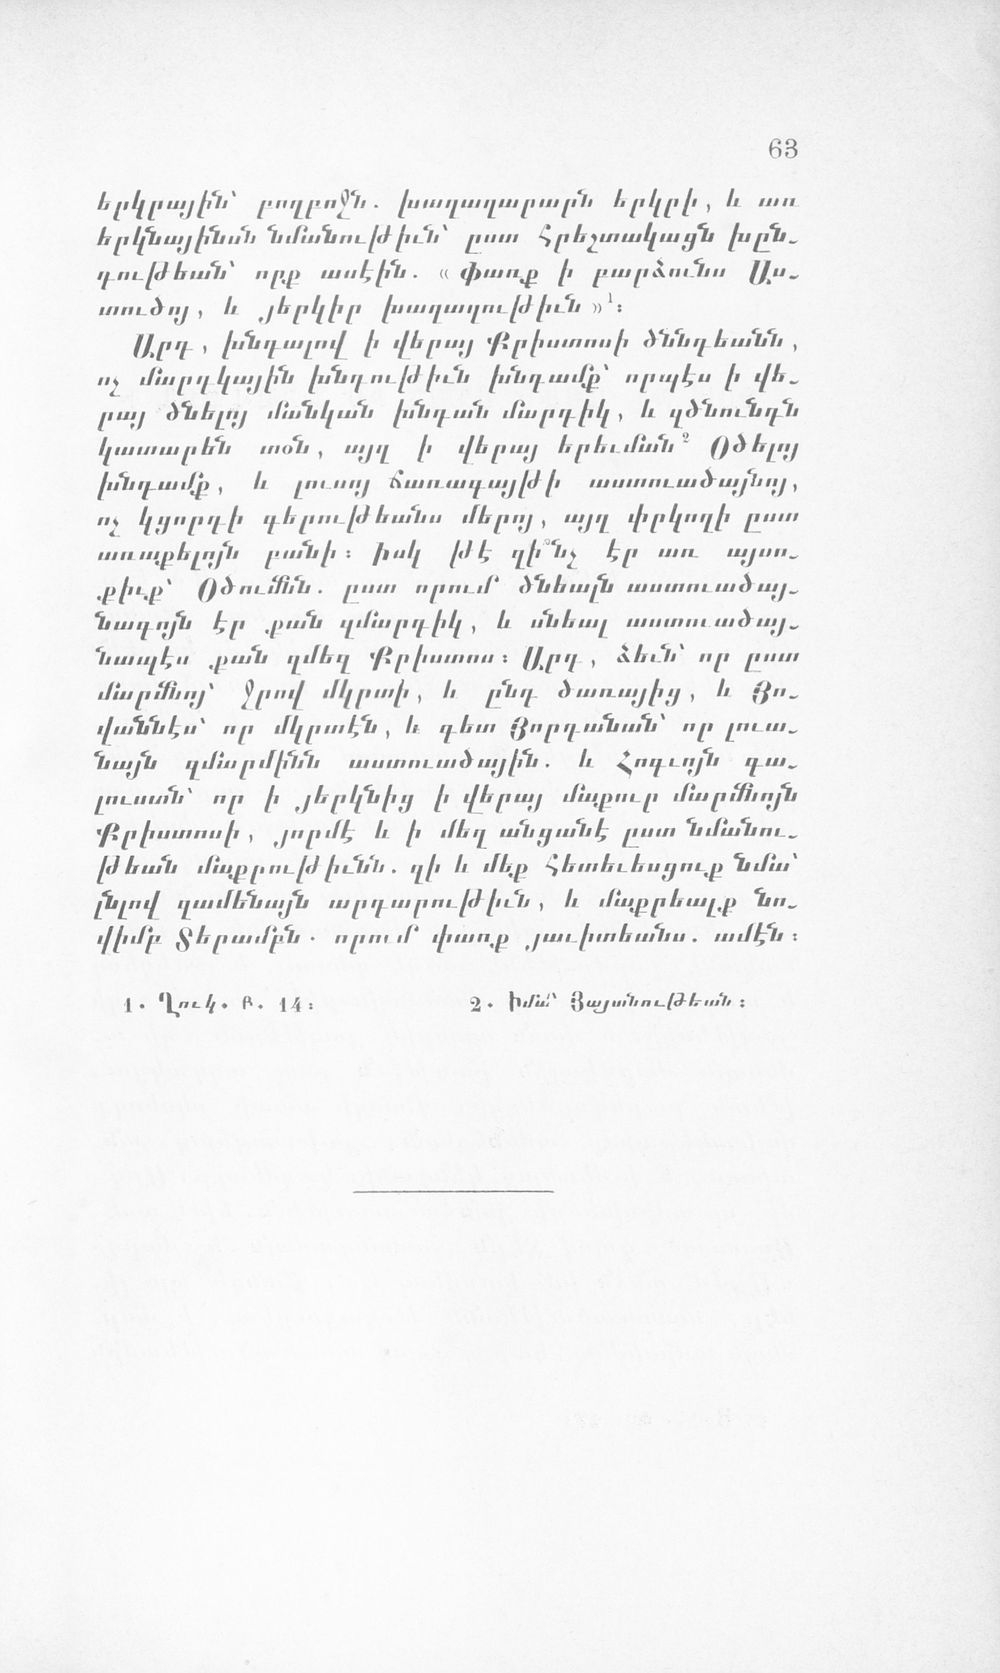 63
երկրային՝ բողբոջն. խաղաղարարն երկրի, և առ
երկնայինսն նմանութիւն՝ ըստ հրեշտակացն խըն-
դութեան՝ որք ասէին. «Փառք ի բարձունս Աս-
տուծոյ, և յերկիր խաղաղութիւն»¹։
Արդ, խնդալով ի վերայ Քրիստոսի ծննդեանն,
ոչ մարդկային խնդութիւն խնդամք՝ որպէս ի վե-
րայ ծնելոյ մանկան խնդան մարդիկ, և զծնունդն
կատարեն տօն, այղ ի վերայ երեւման² Օծելոյ
խնդամք, և լուսոյ ճառագայթի աստուածայնոյ,
ոչ կցորդի գերութեանս մերոյ, այղ փրկողի ըստ
առաքելոյն բանի։ Իսկ թէ զի՞նչ էր առ այսո-
քիւք՝ Օծումն. ըստ որում ծնեալն աստուածայ-
նագոյն էր քան զմարդիկ, և սնեալ աստուածայ-
նապէս քան զմեզ Քրիստոս։ Արդ, ձեւն՝ որ ըստ
մարմնոյ՝ ջրով մկրտի, և ընդ ծառայից, և Յո-
վաննէս՝ որ մկրտէն, և գետ Յորդանան՝ որ լուա-
նայն զմարմինն աստուածային. և Հոգւոյն գա-
լուստն՝ որ ի յերկնից ի վերայ մաքուր մարմնոյն
Քրիստոսի, յորմէ և ի մեզ անցանէ ըստ նմանու-
թեան մաքրութիւնն. զի և մեք հետեւեսցուք նմա՝
լնլով զամենայն արդարութիւն, և մաքրեալք նո-
վիմբ Տերամբն. որում փառք յաւիտեանս. ամէն։
1. Ղուկ. Բ. 14։
2. Իմա՛ Յայտնութեան։